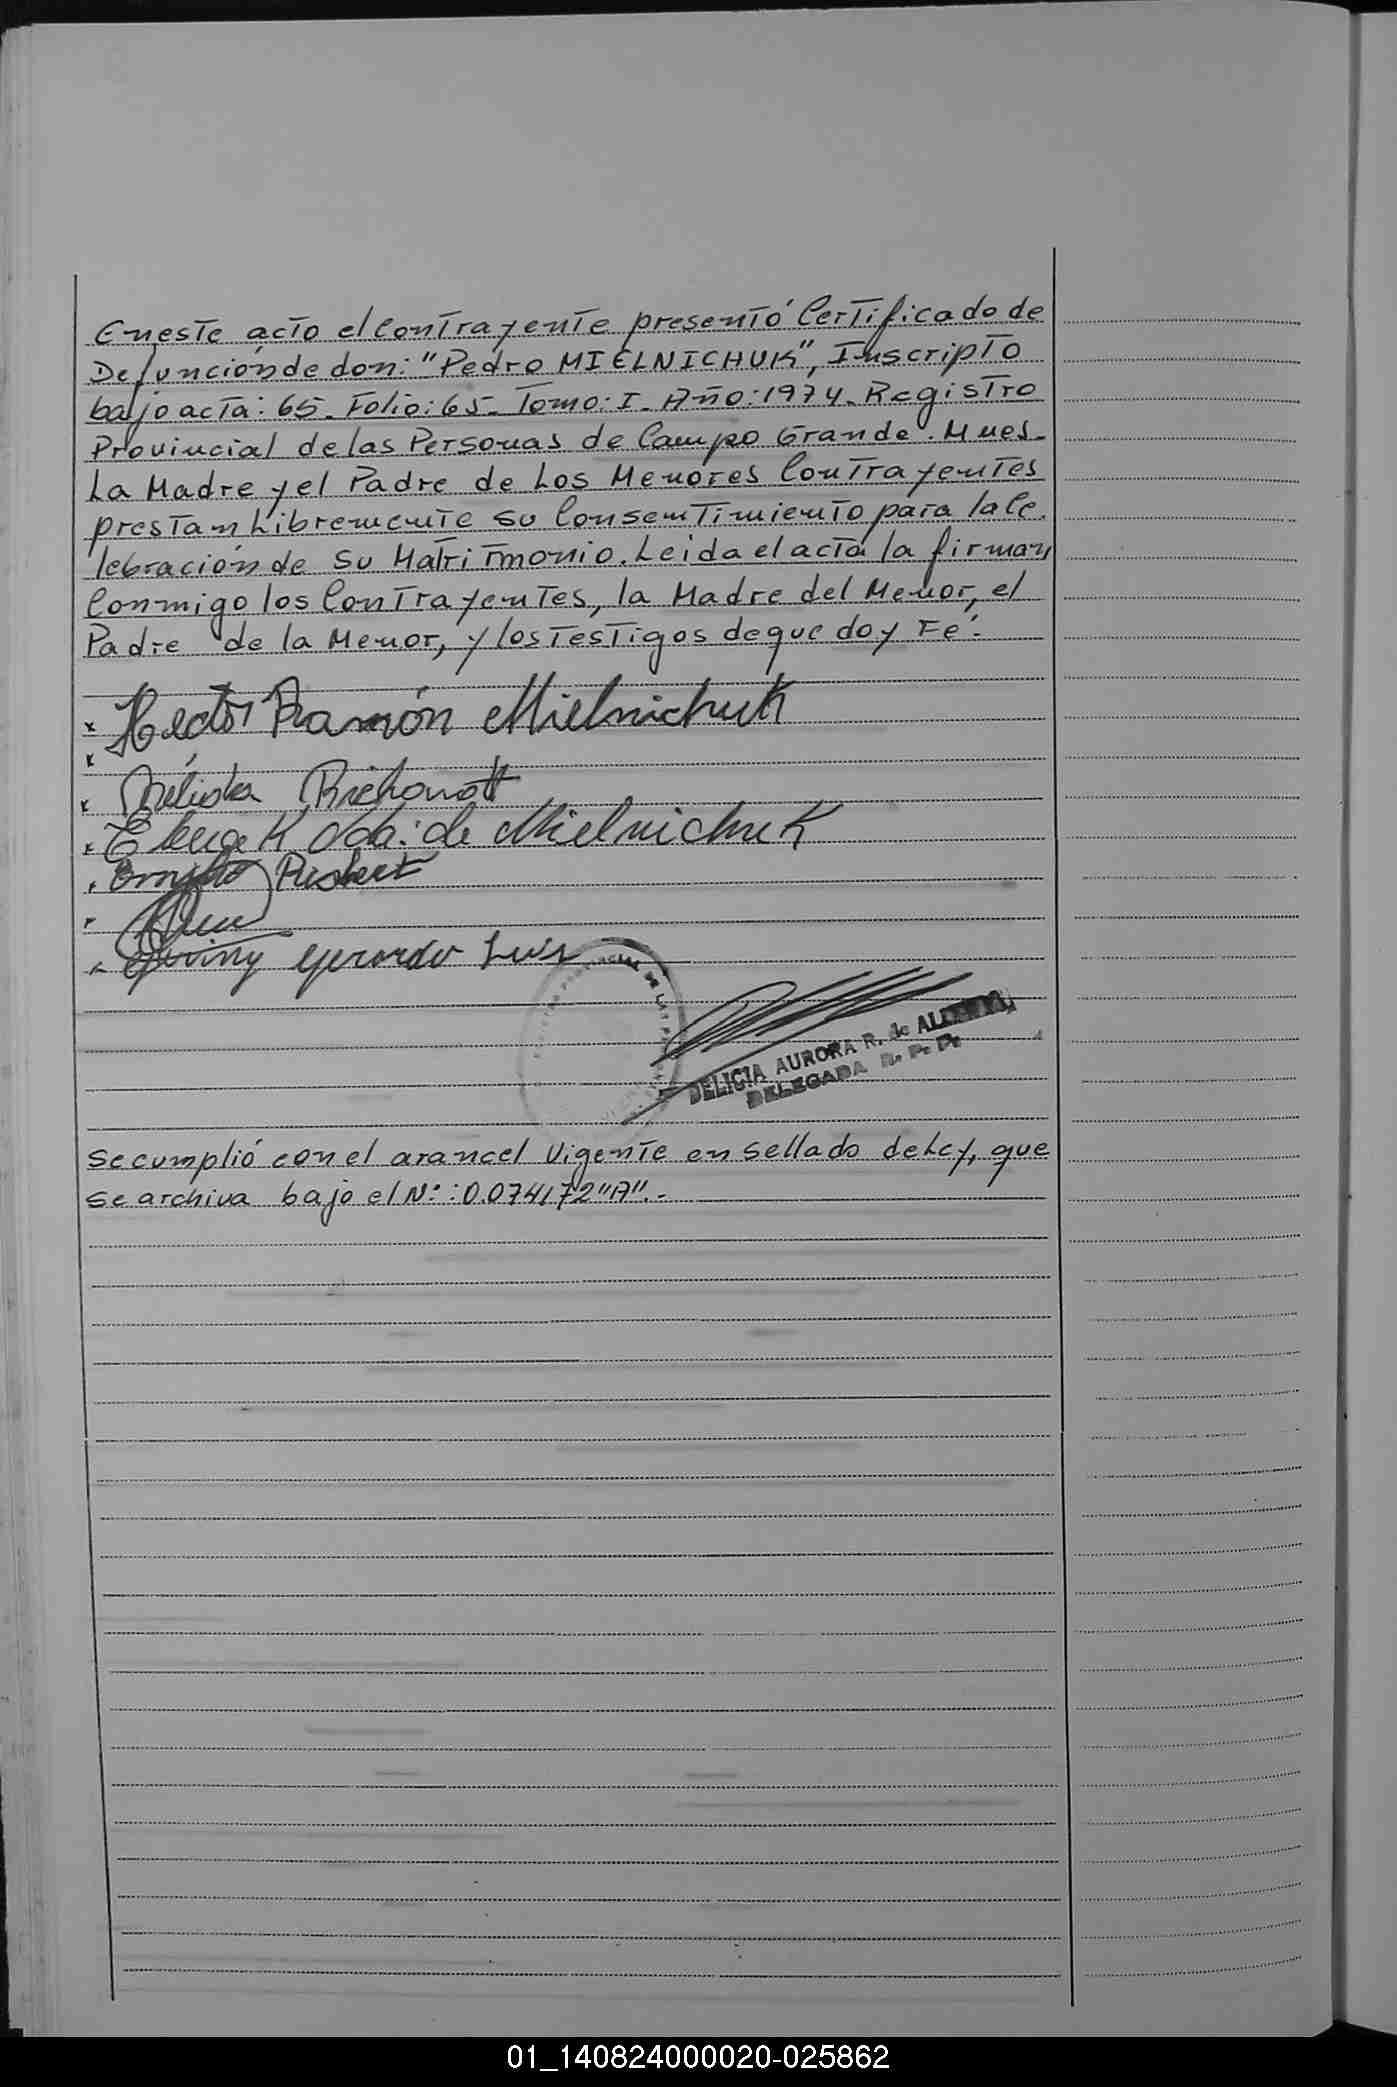 En este acto el Contrayente presentó Certificado de
Defunción de don: "Pedro MIELNICHUK", Inscripto
bajo acta: 65. Folio: 65. Tomo: I. Año: 1974. Registro
Provincial de las Personas de Campo Grande. Mnes.
La Madre y el Padre de Los Menores Contrayentes
prestan Libremente su Consentimiento para la Ce.
lebración de su Matrimonio. Leida el acta la firman
Conmigo los Contrayentes, la Madre del Menor, el
Padre de la Menor, y los Testigos de que doy Fe.
Hector Ramón Mielnichuk
Élida
de Mielnichuk
Gerardo Luis
DELICIA AURORA R. de
DELEGADA R. P. P.
Se cumplió con el arancel Vigente en sellado de Ley, que
se archiva bajo el Nº: 0.074172 "A".-
01_140824000020-025862